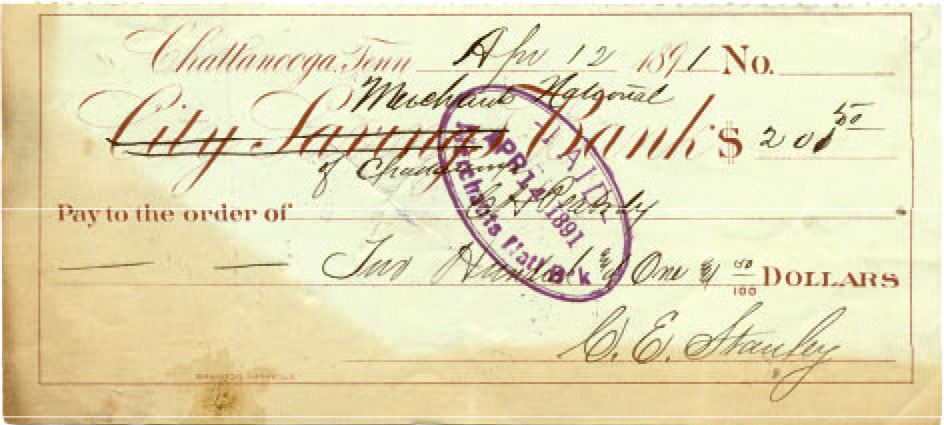 Chattanooga, Tenn Apr 12 1891 No.
Merchants National
City Savings Bank $ 201 50
of Chattanooga
Pay to the order of C
Two Hundred & One & 50/100 DOLLARS
C. E. Stanley
PAID
APR 14 1891
Merchants Natl Bk